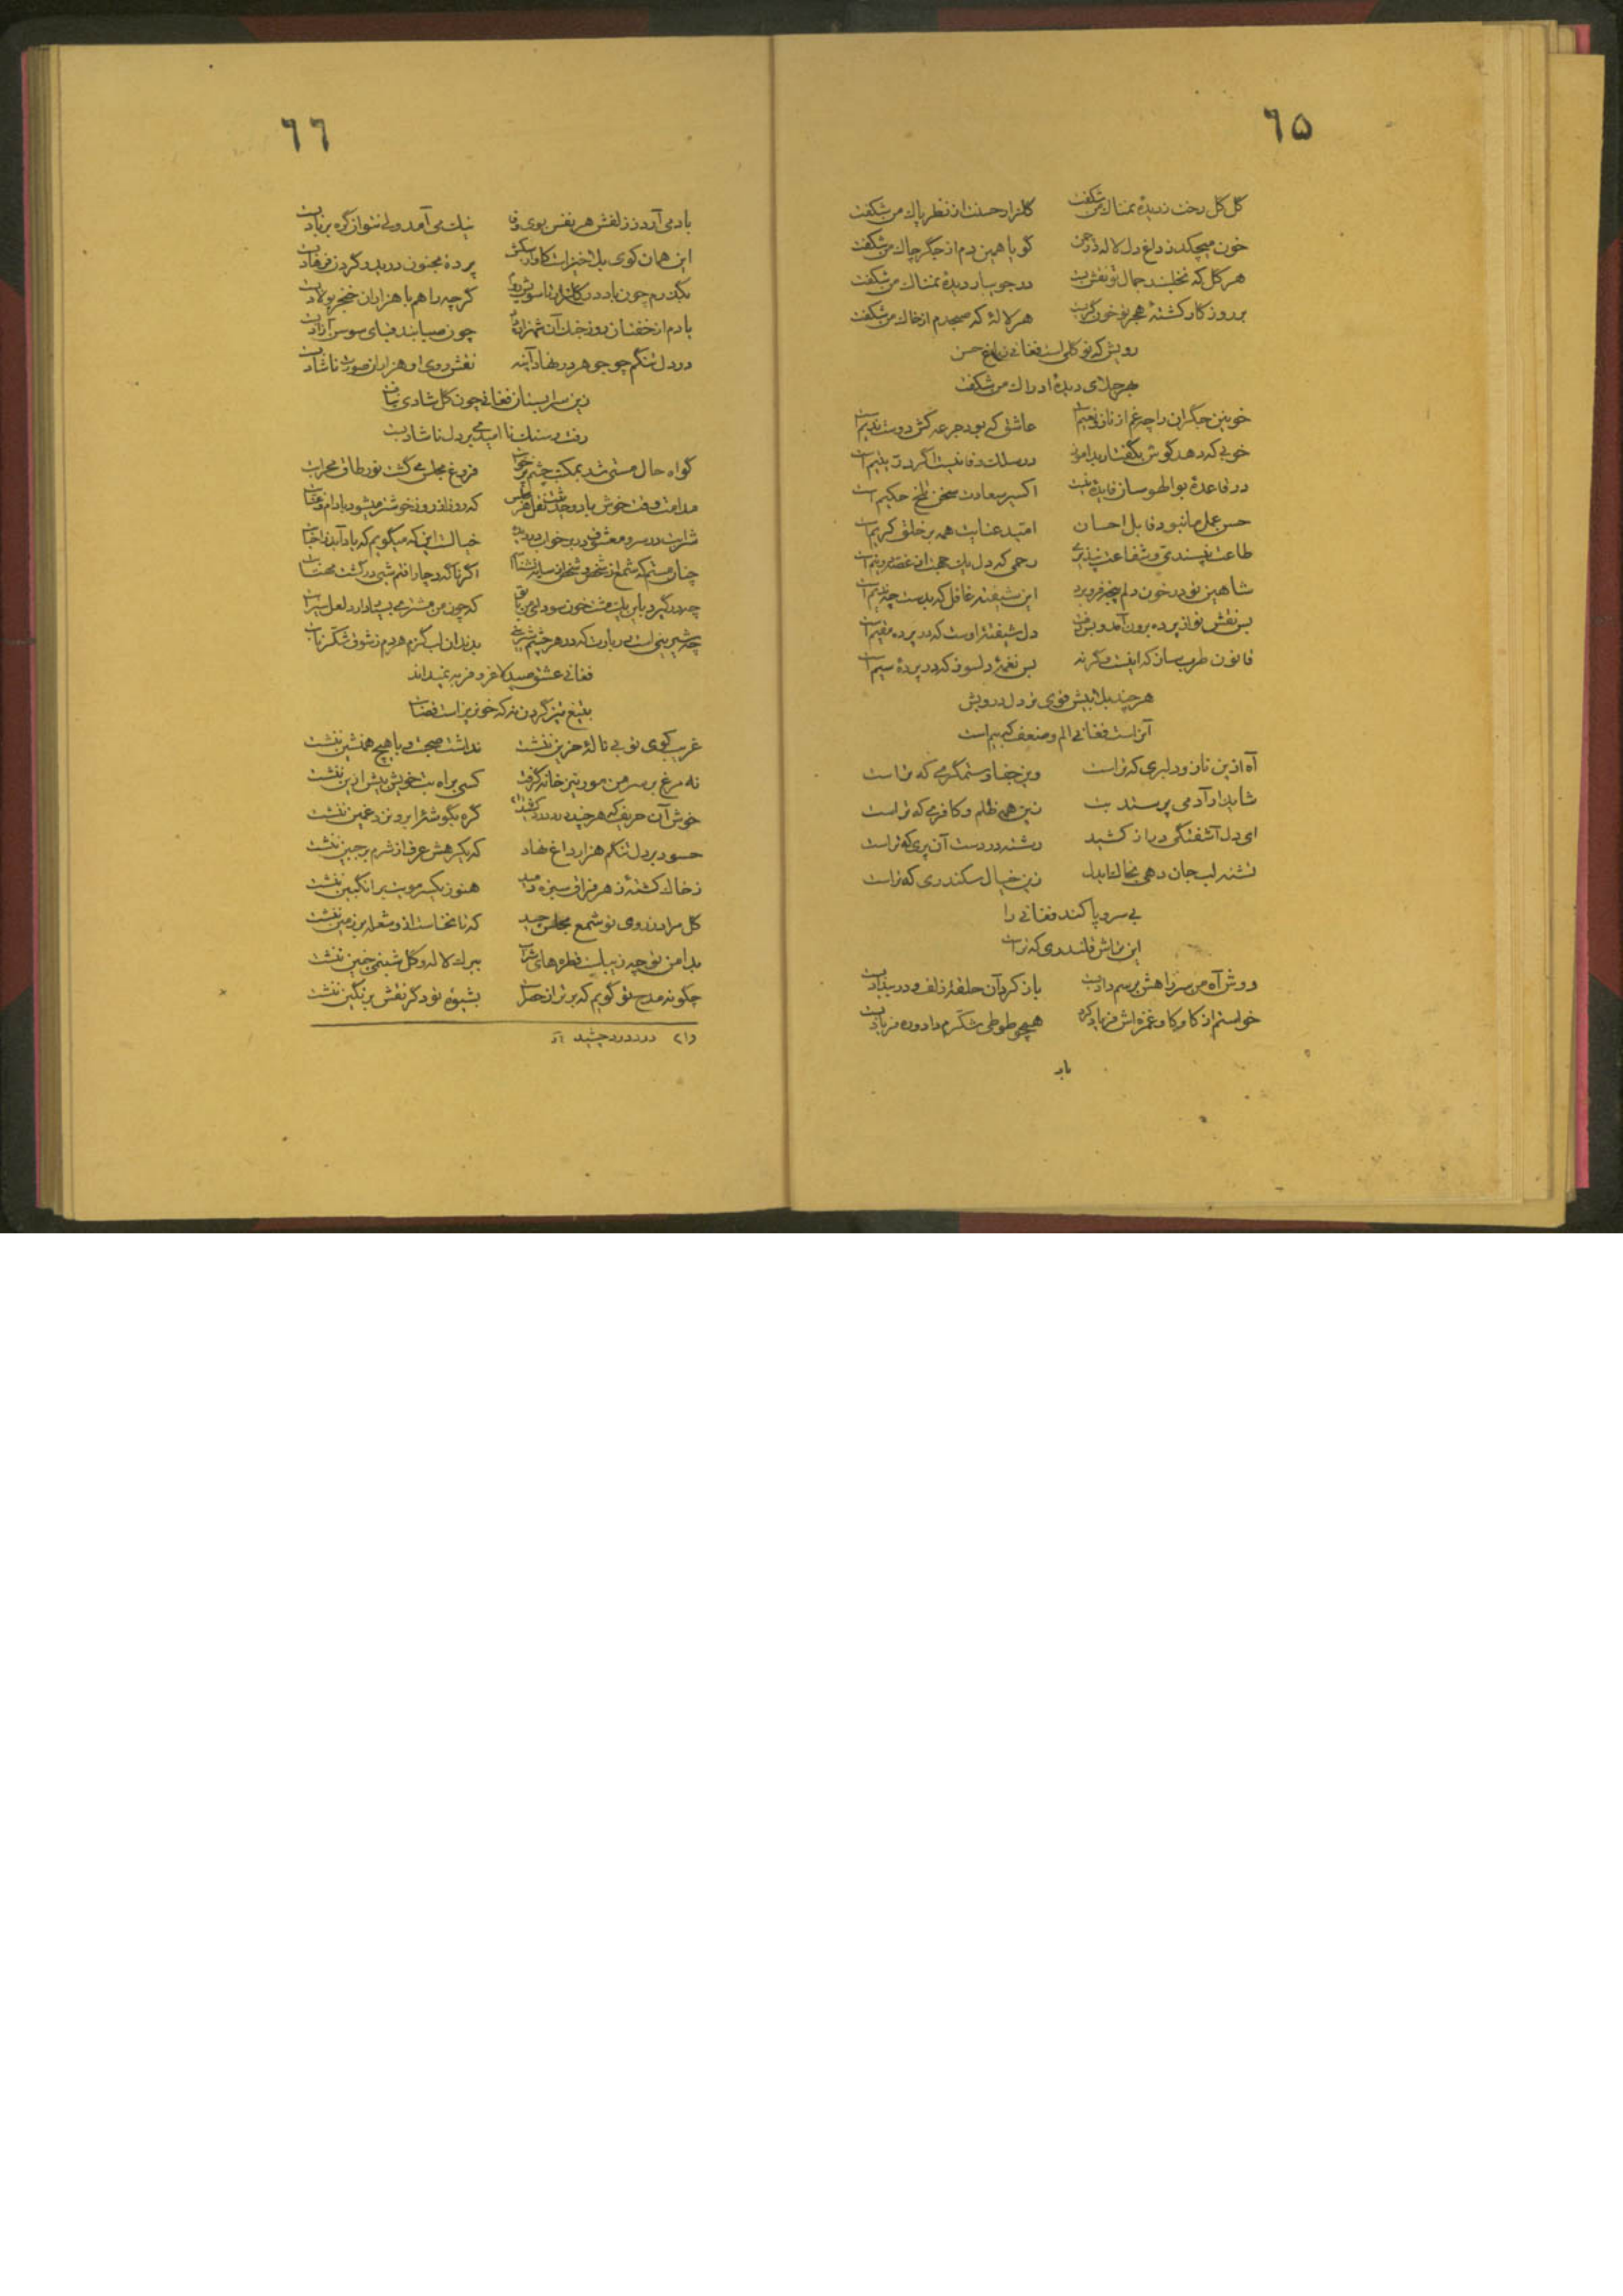 ٦۵
گل گل رخت ز دیدهٔ نمناک من شکفت گلزار حسنت از نظر پاک من شکفت
خون میچکد ز داغ دل لاله در چمن گویا همین دم از جگر چاک من شکفت
هر گل که نخلبند جمال تو نقش بست در جویبار دیدهٔ نمناک من شکفت
بر روز کار کشتهٔ هجر تو خون گریست هر لالهٔ که صبحدم از خاک من شکفت
رویش که نو گلی است فغانی ز باغ حسن
بهر جلای دیدهٔ ادراک من شکفت
خونین جگران را چه غم از ناز و نعیم است عاشق کی بود جرعه کش دوست ندیم است
خوبی که دهد گوش بگفتار بدآموز در سلک وفا نیست اگر در یتیم است
در قاعدهٔ بوالهوسان فایدهٔ نیست اکسیر سعادت سخن تلخ حکیم است
حسن عمل ما نبود قابل احسان امّید عنایت همه بر خلق کریم است
طاعت نپسندی و شفاعت نپذیری رحمی که دل از غصه دو نیم است
شاهین تو در خون دلم پنجه فرو برد این شیفته غافل که بدست چه ندیم است
بس نقش تو از پرده برون آمد و دل شیفته تر اوست که در پرده مقیم است
قانون طرب ساز که اینست و گرنه بس نغمهٔ دلسوز که در پردهٔ سیم است
هر چند بلا بیش قوی تر دل درویش
آنراست فغانی الم و ضعف که بیم است
آه ازین ناز و دلبری که تراست وین جفا و ستمگری که تراست
شاید ار آدمی پرستد بت زین همه ظلم و کافری که تراست
ای دل آشفتگی دراز کشید رشته در دست آن پری که تراست
تشنه لب جان دهی بخاک ابدل زین خیال سکندری که تراست
بی سر و پا کند فغانی را
این تراش قلندری که تراست
دوش آه من سر راهش برسم داد بست باز کرد آن حلقهٔ زلف و در بیداد بست
خواستم از کاو کاو غمزه اش فریاد کرد همچو طوطی شکّرم داد و ره فریاد بست
باد
٦٦
باد می آرد ز زلفش هر نفس بوی وفا نیک می آمد ولی نتوان گره بر باد بست
این همان کوی بلا خیز است کاول پردهٔ مجنون درید و گردن فرهاد بست
بگذرم چون باد در گلزار گرچه راهم با هزاران خنجر پولاد بست
یادم از خفتان روز جنک آن شهزاده چون صبا بند قبای سوسن آزاد بست
در دل تنگم چو جوهر در نهاد آینه نقش روی او هزاران صورت ناشاد بست
زین سرابستان فغانی چون گل شادی نیافت
رفت و سنک نا امیدی بر دل ناشاد بست
گواه حال مستی شد بمکتب چشم پر خوابت فروغ مجلس می گشت نور طاق محرابت
مدامت وقت خوش باد و حدیثت نقل هر مجلس که روز از روز خوشتر میشود بادام و عنّابت
شرابت در سر و معشوق در بر خواب در دیده خیالست این که میگویم که یاد آید ز احبابت
چنان مستم که شمع از شخص و شخص از سایه نشناسم اگر ناگه دچار افتم شبی در گشت مهتابت
چه در گیرد باین یک مشت خون سودای من با تو که چون من مشتری بسیار دارد لعل سیرابت
چه شیرینی است در یاد لبت که در هر بدندان لب گزم هر دم ز شوق شکّر نابت
فغانی عشق صید لاغر و فربه نمیداند
بتیغ تیز گردن نه که خونریز است قصّابت
غریب کوی تو بی نالهٔ حزین ننشست نداشت صحبت و با هیچ همنشین ننشست
نه مرغ بر سر من مور نیز خانه گرفت کسی براه بت خویش بیش ازین ننشست
خوش آن حریف که هر چند درد کشید گره بگوشهٔ ابرو نزد غمین ننشست
حسود بر دل تنگم هزار داغ نهاد که یکرهش عرق از شرم بر جبین ننشست
ز خاک کشتهٔ زهر فراق سبزه دمید هنوز یکسر مویت بر انگبین ننشست
گل مراد ز روی تو شمع مجلس چید که تا نخاست ازو شعله بر زمین ننشست
بدامن تو چه زیباست قطره های شراب ببرک لاله و گل شبنمی چنین ننشست
چگونه مدح تو گویم که برتر از حصر است بشیوهٔ تو دگر نقش بر نگین ننشست